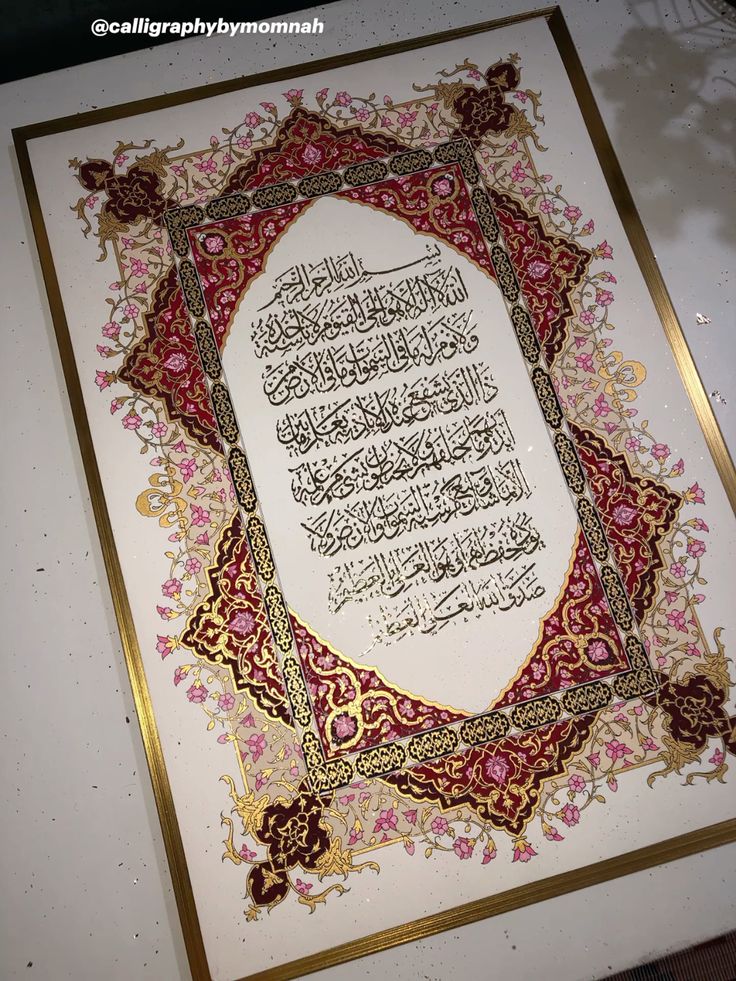 @calligraphybymomnah
بسم الله الرحمن الرحيم
الله لا إله إلا هو الحي القيوم لا تأخذه سنة
ولا نوم له ما في السموات وما في الأرض من
ذا الذي يشفع عنده إلا بإذنه يعلم ما بين
أيديهم وما خلفهم ولا يحيطون بشيء من علمه
إلا بما شاء وسع كرسيه السموات والأرض ولا
يؤده حفظهما وهو العلي العظيم
صدق الله العلي العظيم